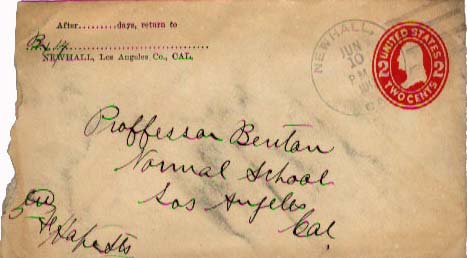 After.........days, return to
Box 14
NEWHALL, Los Angeles Co., CAL.
NEWHALL
JUN
10
P M
CAL
UNITED STATES
2 2
TWO CENTS
Proffessor Bentan
Normal School
Los Angeles
Cal
5th
Sts